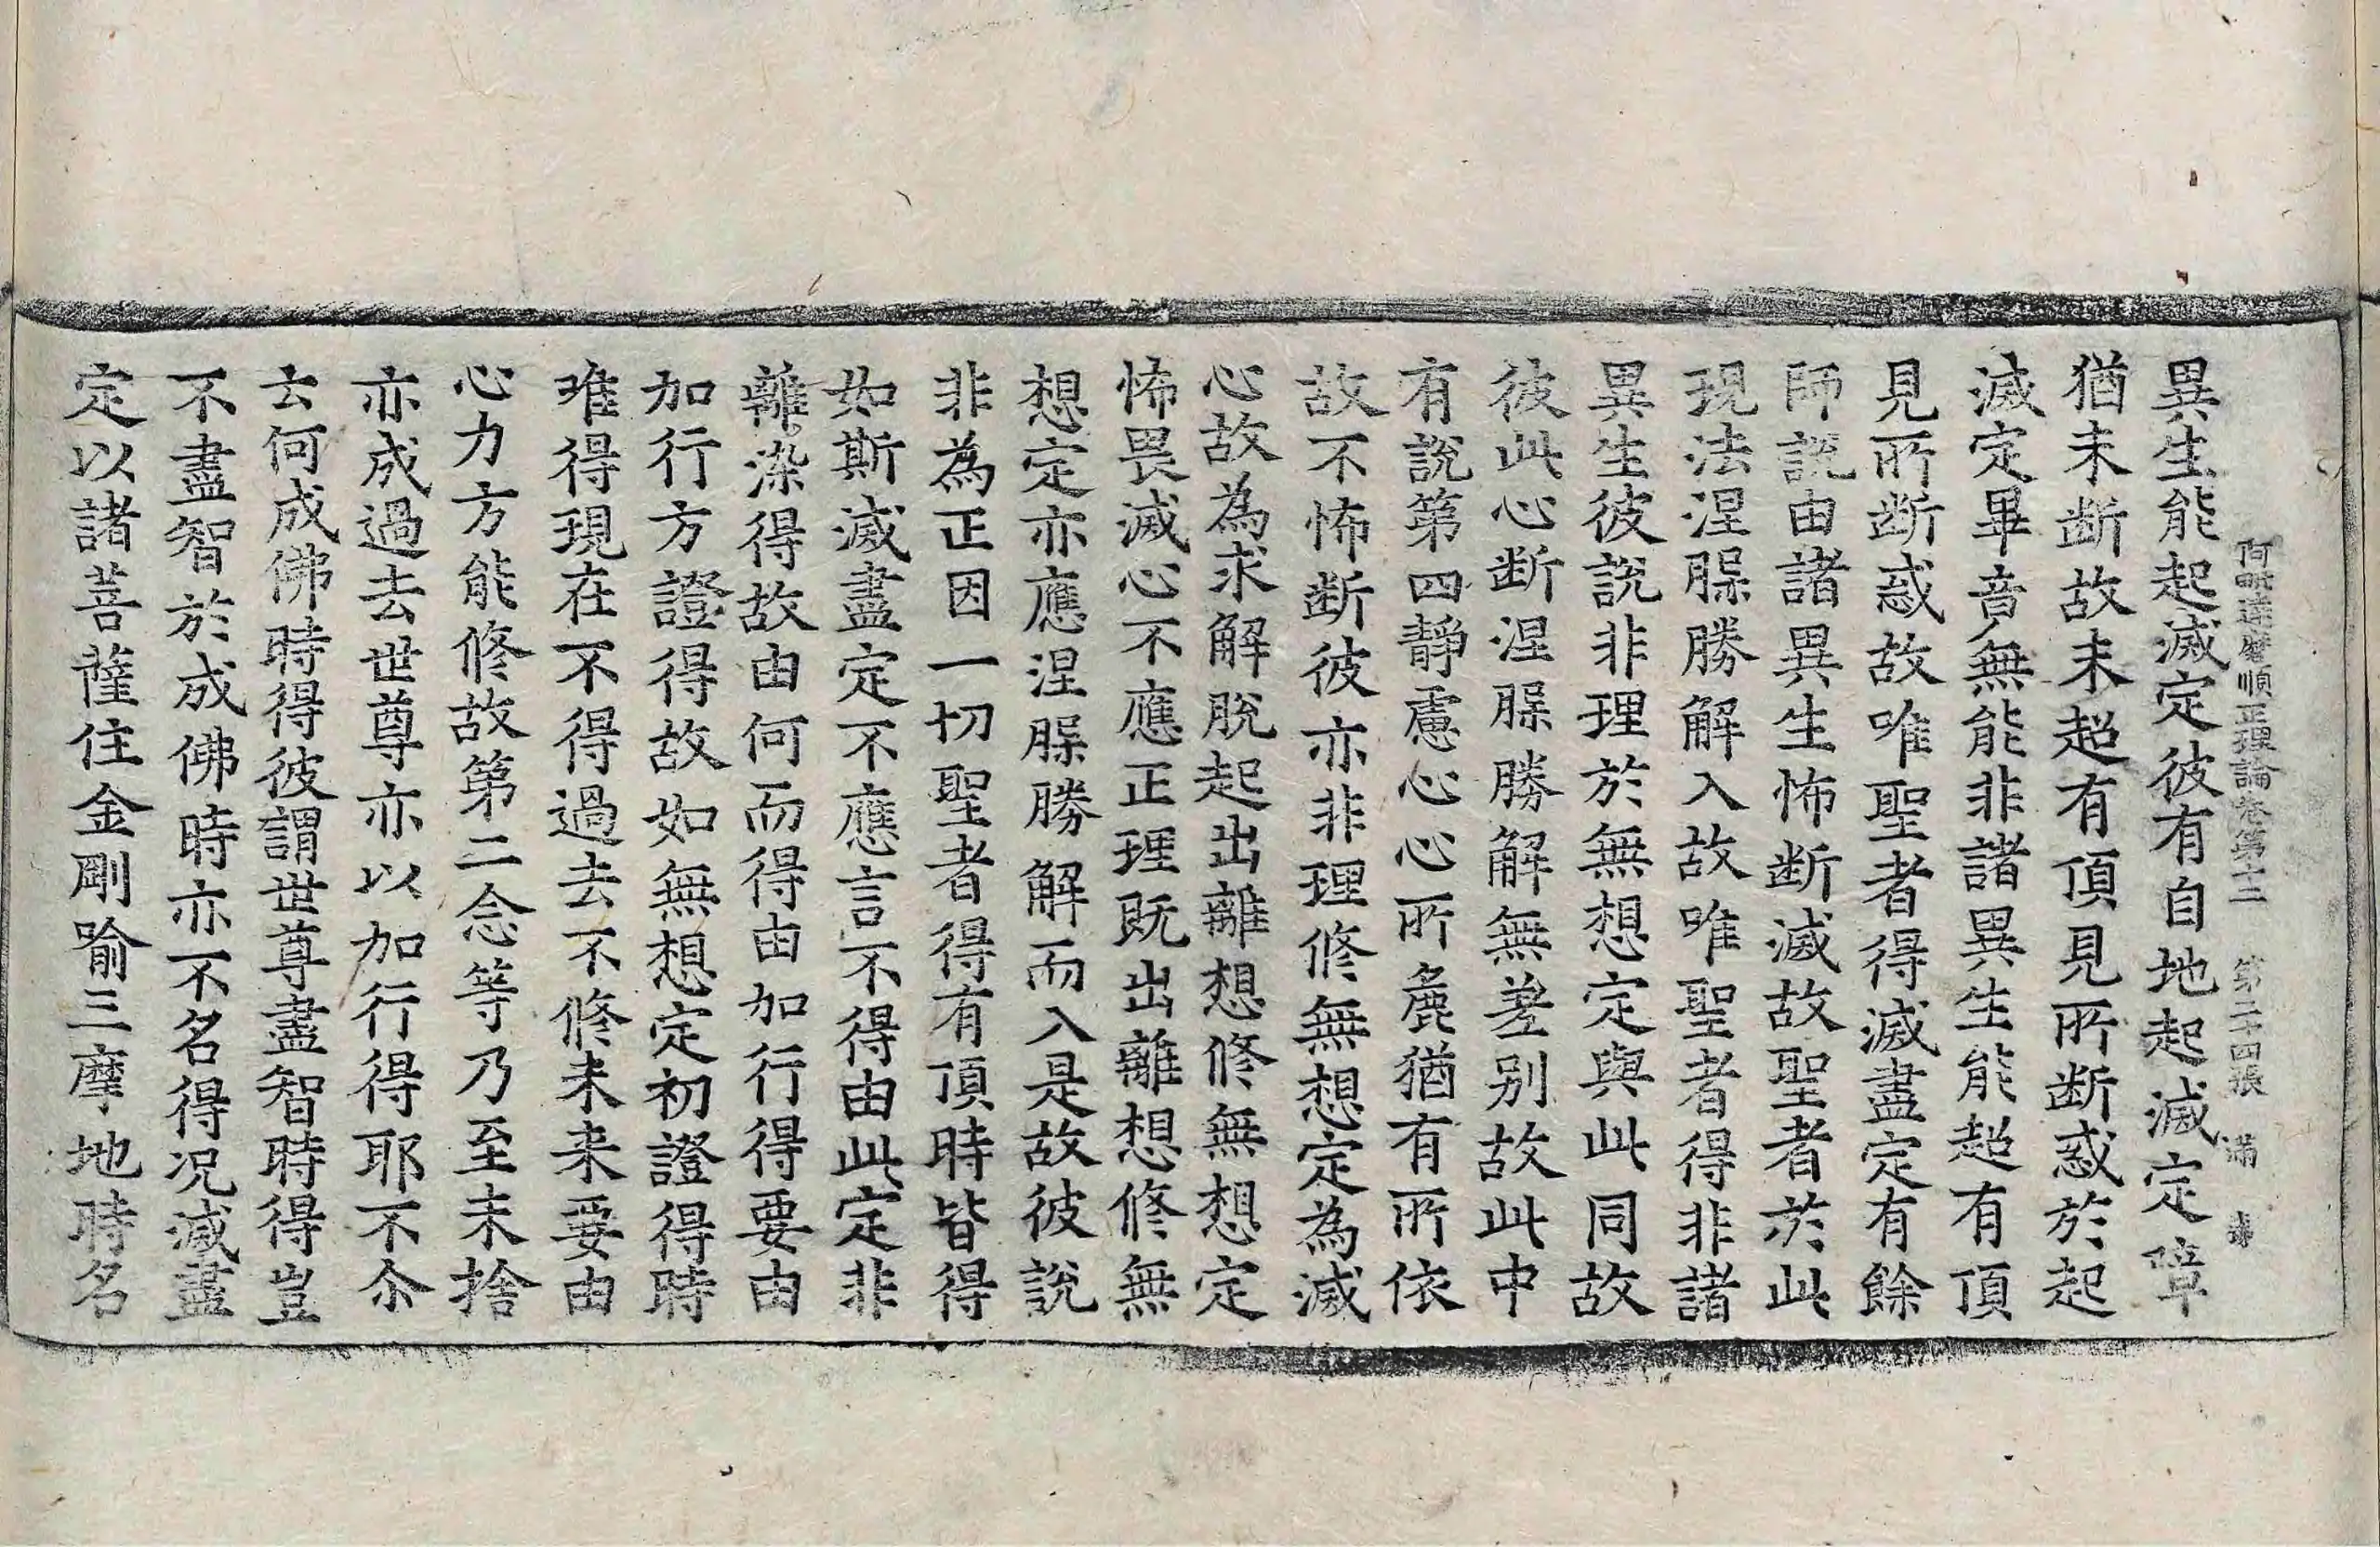 阿毗達磨順正理論卷第十二　第二十四張　滿
異生能起滅定彼有自地起滅定障
猶未断故未超有頂見所断惑於起
滅定畢竟無能非諸異生能超有頂
見所断惑故唯聖者得滅盡定有餘
師説由諸異生怖断滅故聖者於此
現法涅槃勝解入故唯聖者得非諸
異生彼説非理於無想定與此同故
彼此心断涅槃勝解無差别故此中
有説第四静慮心心所麁猶有所依
故不怖断彼亦非理修無想定為滅
心故為求解脱起出離想修無想定
怖畏滅心不應正理既出離想修無
想定亦應涅槃勝解而入是故彼説
非為正因一切聖者得有頂時皆得
如斯滅盡定不應言不得由此定非
離染得故由何而得由加行得要由
加行方證得故如無想定初證得時
唯得現在不得過去不修未来要由
心力方能修故第二念等乃至未捨
亦成過去世尊亦以加行得耶不尒
云何成佛時得彼謂世尊盡智時得豈
不盡智於成佛時亦不名得况滅盡
定以諸菩薩住金剛喻三摩地時名